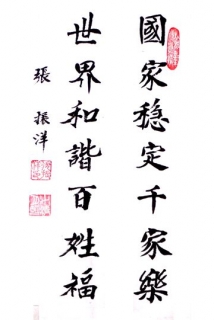 國家稳定千家樂
世界和諧百姓福
張振洋